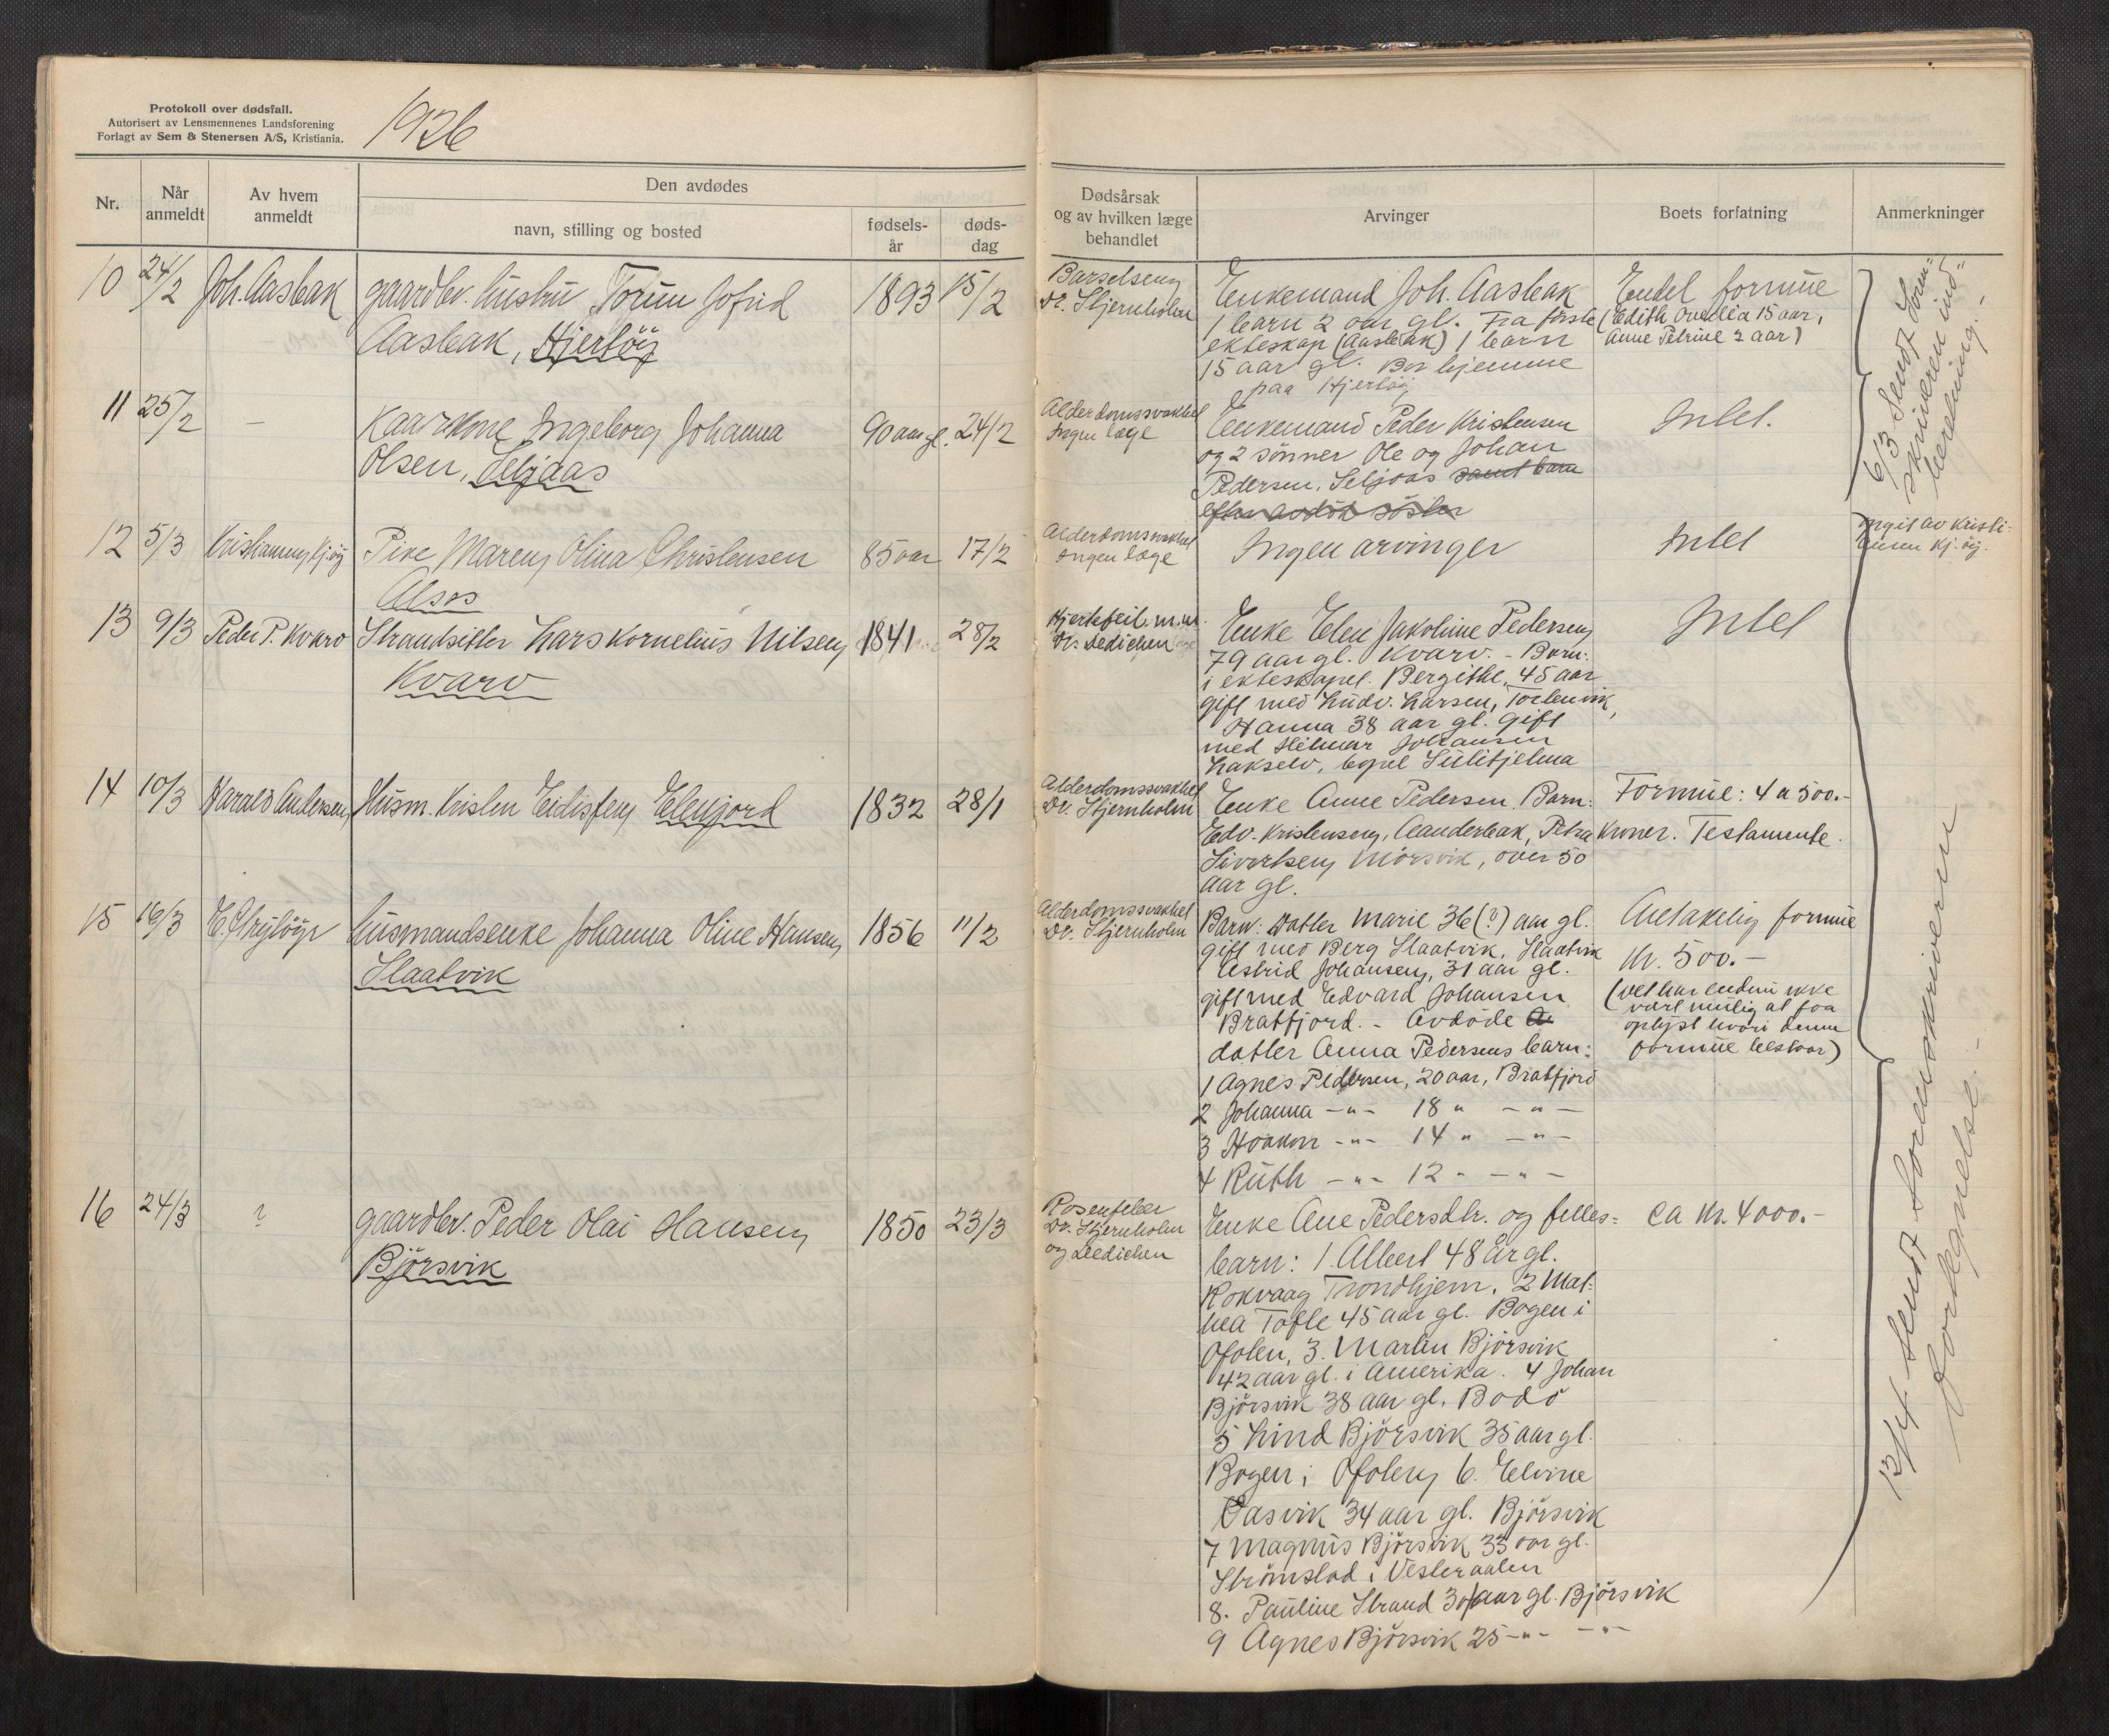 Protokoll over dødsfall.
Autorisert av Lensmennenes Landsforening
Forlagt av Sem & Stenersen A/S, Kristiania.
1926
Nr.
Når anmeldt
Av hvem anmeldt
Den avdødes
navn, stilling og bosted
fødsels-år
døds-dag
Dødsårsak og av hvilken læge behandlet
Arvinger
Boets forfatning
Anmerkninger
10 24/2 Joh. Aasbak gaardbr. hustru Torun Jofrid 1893 15/2
Aasbak, Hjertöy
Barselseng
Dr. Stjernholm
Enkemand Joh. Aasbak
1 barn 2 aar gl. Fra første
ekteskap (Aasbak) 1 barn
15 aar gl. Bor hjemme
paa Hjertöy
Endel formue
(Edith 15 aar,
Anne Petrine 2 aar)
11 25/2 — Kaarkone Ingeborg Johanna 90 aar gl. 24/2
Olsen, Seljaas
Alderdomssvakhet
Ingen læge
Enkemand Peder Kristensen
og 2 sønner Ole og Johan
Pedersen, Seljaas samt barn
efter avdöd søster
Intet.
6/3 sendt Sorenskriveren indberetning.-
12 5/3 Pike Maren Olina Christensen 85 aar 17/2
Alsos
Alderdomssvakhet
Ingen læge
Ingen arvinger
Intet
13 9/3 Peder P. Kvarv Strandsitter Lars Kornelius Nilsen 1841 28/2
Kvarv
Hjertefeil m.m.
Dr. Dedichen
Enke Elen Jakobine Pedersen
79 aar gl. Kvarv. - Barn:
i ekteskapet. Bergithe, 45 aar
gift med Ludv. Larsen, Torbenvik,
Hanna 38 aar gl. gift
med Hilmar Johansen
Lakselv, bopel Sulitjelma
Intet
14 10/3 Harald Andersen Husm. Kristen Eidissen Elenjord 1832 28/1
Alderdomssvakhet
Dr. Stjernholm
Enke Anne Pedersen. Barn:
Edv. Kristensen, Aanderbak, Petra
Sivertsen Mörsvik, over 50
aar gl.
Formue: 4 a 500.-
Kroner. Testamente.
15 16/3 husmandsenke Johanna Oline Hansen 1856 11/2
Slaatvik
Alderdomssvakhet
Dr. Stjernholm
Barn: Datter Marie 36 (?) aar gl.
gift med Berg Slaatvik, Slaatvik
Astrid Johansen, 31 aar gl.
gift med Edvard Johansen
Bratfjord. - Avdöde
datter Anna Pedersens barn:
1 Agnes Pedersen, 20 aar, Bratfjord
2 Johanna -"- 18 " -"-
3 Haakon -"- 14 " -"-
4 Ruth -"- 12 " -"-
Antakelig formue
Kr. 500.-
(Det har endnu ikke
vært mulig at faa
oplyst hvori denne
formue bestaar)
16 24/3 ? gaardbr. Peder Olai Hansen 1850 23/3
Björsvik
Rosenfeber
Dr. Stjernholm
og Dedichen
Enke Ane Pedersdtr. og felles-
barn: 1. Albert 48 år gl.
Rokvaag Trondhjem. 2 Mat-
hea Tofte 45 aar gl. Bogen i
Ofoten, 3. Martin Björsvik
42 aar gl. i Amerika. 4 Johan
Björsvik 38 aar gl. Bodö
5 Lind Björsvik 35 aar gl.
Bogen i Ofoten 6. Elvine
Vasvik 34 aar gl. Björsvik
7 Magnus Björsvik 33 aar gl.
Strömstad i Vesteraalen
8. Pauline Strand 30 aar gl. Björsvik
9 Agnes Björsvik 25 -"- -"-
ca kr. 4000.-
13/4 sendt Sorenskriveren
fortegnelse.-